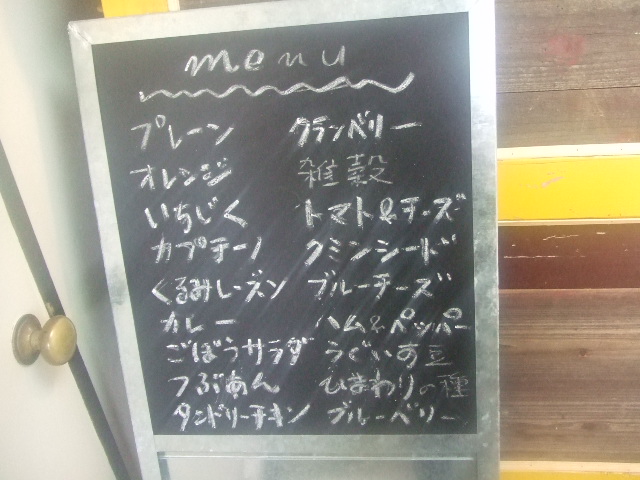 menu
プレーン クランベリー
オレンジ 雑穀
いちじく トマト&チーズ
カプチーノ クミンシード
くるみレーズン ブルーチーズ
カレー ハム&ペッパー
ごぼうサラダ うぐいす豆
つぶあん ひまわりの種
タンドリーチキン ブルーベリー